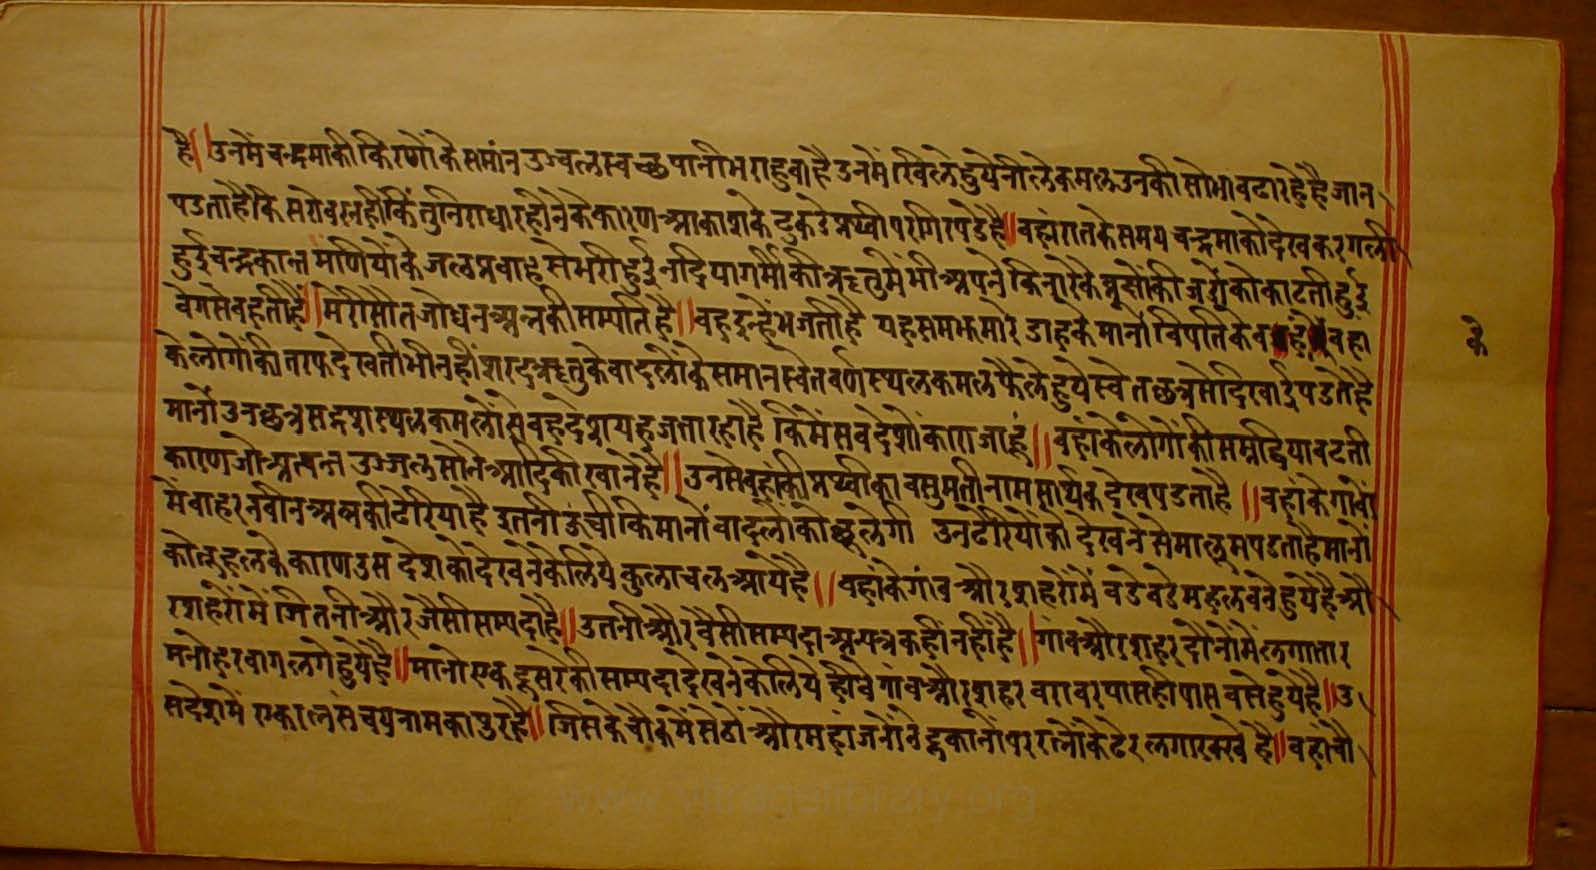 है॥ उनमें चन्द्रमाकी किरणों के समांन उज्वलस्वच्छ पानी भराहुवा है उनमें खिले हुये नीले कमल उनकी सोभा बढा रहे है जान
पडता है कि सरोवर नहीं किंतु निराधार होने के कारण आकाश के टुकडे प्रथ्वी पर गिर पडे है॥ वहां रात के समय चन्द्रमा को देख कर गली
हुई चन्द्रकान्त मणियों के जल प्रवाह से भरी हुई नदिया गर्मी की ऋतु में भी अपने किनारे के ब्रक्षों की जडों को काटती हुई
वेग से बहती है॥ मेरी सौत जो धन अन्न की सम्पति है॥ वह इन्हें भजती है यह समझ मारे डाह के मानों विपति के व है वहा
के लोगों की तरफ देखती भी नहीं शरद ऋतु के वादलों के समान स्वेत वर्ण स्थल कमल फैले हुये स्वेत छत्र से दिखाई पडते है
मानों उन छत्र सद्रश स्थल कमलों से वह देश यह जता रहा है कि में सब देशों का राजा हूं॥ वहां के लोगों की सम्रद्धि या बढती
कारण जो अत्यन्त उज्जल सोने आदि की खाने है॥ उनसे वहां की प्रथ्वी का वसुमती नाम सार्थक देख पडता है॥ वहां के गांवों
में बाहर नवीन अन्न की ढेरिया है इतनी ऊची कि मानों वादलों को छू लेगी उन ढेरियों को देखने से मालूम पडता है मानों
कोतुहल के कारण उस देश को देखने के लिये कुलाचल आये है॥ वहां के गांव और शहरों में बडे बडे महल बने हुये है औ
र शहरों में जितनी और जैसी सम्पदा है॥ उतनी और वैसी सम्पदा अन्यत्र कहीं नहीं है॥ गांव और शहर दोनों में लगातार
मनोहर बाग लगे हुये है॥ मानो एक दूसरे की सम्पदा देखने के लिये ही वे गांव और शहर बराबर पास ही पास बसे हुये है॥ उ
स देश में रत्न संचय नाम का पुर है॥ जिसके चौक में सेठों और महांजनों ने दूकानों पर रत्नों के ढेर लगा रक्खे है॥ वहां चौ
के
www.vitragslibrary.org